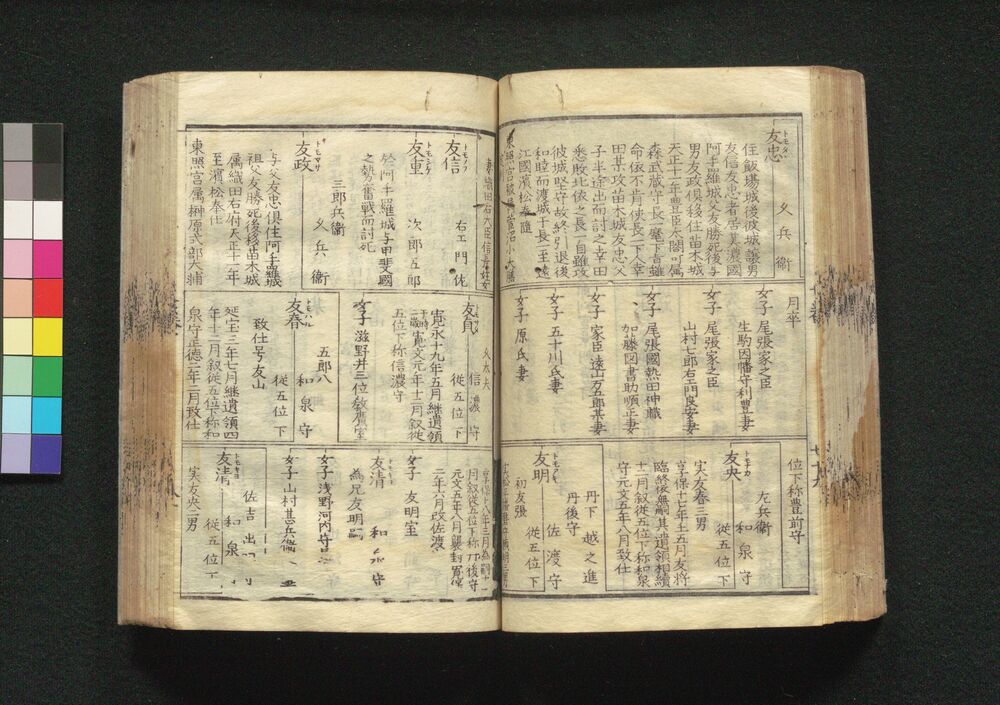 友忠
トモタヽ
久兵衞
住飯場城後彼城譲男
友信友忠者居美濃國
阿手羅城父友勝死後与
男友政倶移住苗木城
天正十一年豊臣太閤可属
森武蔵守長一麾下旨雖
命依不肯侠長一下人幸
田某攻苗木城友忠父
子半途出而討之幸田
悉敗北依之長一自雖攻
彼城堅守故終引退後
和睦而渡城于長一至遠
江國濱松奉随
月卒
女子 尾張家之臣
生駒因幡守利豊妻
女子 尾張家之臣
山村七郎右エ門良安妻
女子 尾張國熱田神職
加藤図書助順正妻
女子 家臣遠山万五郎某妻
女子 五十川氏妻
女子 原氏妻
位下称豊前守
友央
左兵衛
和泉守
従五位下
実友春三男
享保十七年五月友将
臨終依無嗣其遺領相續
十二月叙従五位下称和泉
守元文五年八月致仕
友明
丹下 越之進
丹後守
佐渡守
従五位下
初友張
友信
トモノフ
右エ門佐
友重
トモシケ
次郎五郎
於阿手羅城与甲斐國
之勢奮戦而討死
三郎兵衞
友政
トモマサ
久兵衞
与父友忠倶住阿手羅城
祖父友勝死後移苗木城
属織田右府天正十一年
至濱松奉仕
東照宮属榊原式部大輔
友貞
久太夫
信濃守
従五位下
寛永十九年五月継遺領
寛文元年十二月叙従
五位下称信濃守
女子 滋野井三位教廣室
友春
トモハル
五郎八
和泉守
従五位下
致仕号友山
延宝三年七月継遺領四
年十二月叙従五位下称和
泉守正徳二年二月致仕
月叙従五位下称丹後守
元文五年八月襲封寛保
二年六月改佐渡
女子 友明室
友清
トモキヨ
和泉守
為兄友明嗣
女子 浅野河内守
女子 山村甚兵衞
友清
トモキヨ
佐吉
和泉
従五位下
実友央二男